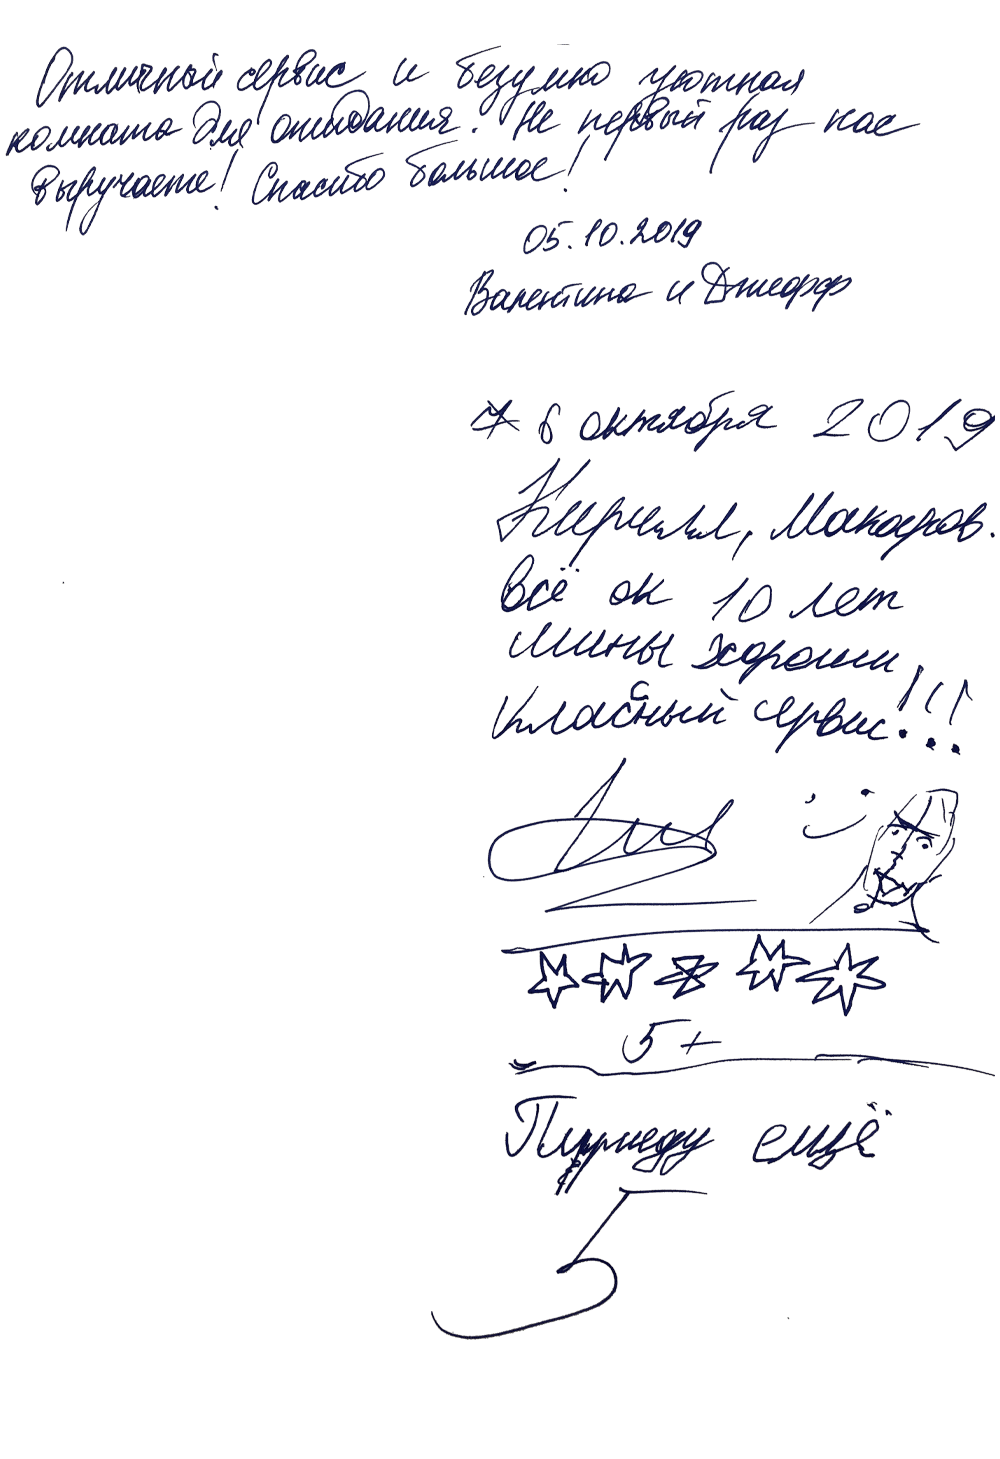 Отличный сервис и безумно уютная
комната для ожидания. Не первый раз нас
выручаете! Спасибо большое!
05.10.2019
Валентина и Джефф
6 октября 2019
Кирилл, Макаров.
Всё ок 10 лет
Шины хороши,
Классный сервис!!!
5+
Приеду ещё
5